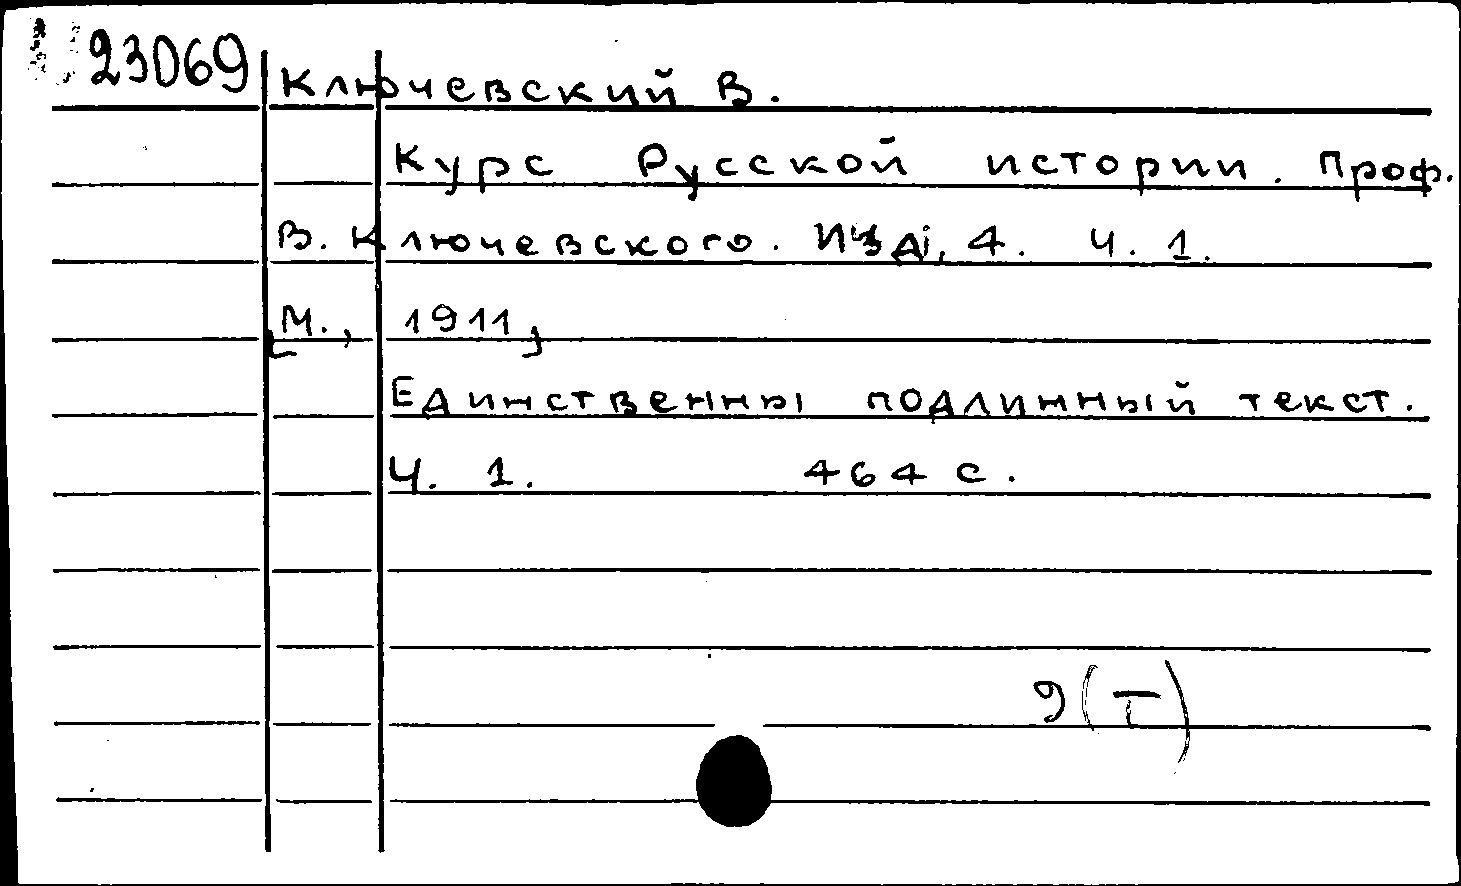 23069 Ключевский В.
Курс Русской истории. Проф.
В. Ключевского. Изд. 4. Ч. 1.
[М., 1911]
Единственны подлинный текст.
Ч. 1. 464 с.
9(Т)